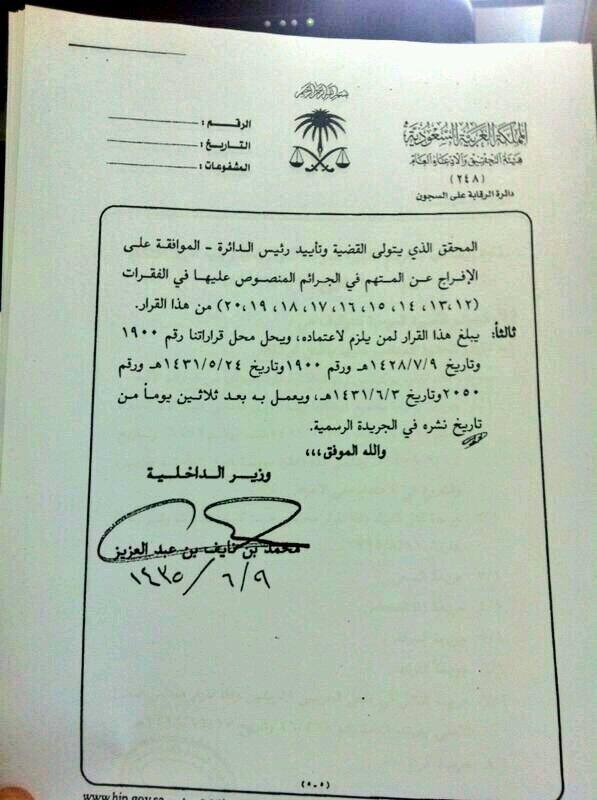 بسم الله الرحمن الرحيم
المملكة العربية السعودية
هيئة التحقيق والادعاء العام
(٢٤٨)
دائرة الرقابة على السجون
الرقم :
التاريخ :
المشفوعات :
المحقق الذي يتولى القضية وتأييد رئيس الدائرة - الموافقة على
الإفراج عن المتهم في الجرائم المنصوص عليها في الفقرات
(١٢،١٣، ١٤، ١٥، ١٦، ١٧، ١٨، ٢٠،١٩) من هذا القرار.
ثالثاً: يبلغ هذا القرار لمن يلزم لاعتماده، ويحل محل قراراتنا رقم ١٩٠٠
وتاريخ ١٤٢٨/٧/٩هـ ورقم ١٩٠٠وتاريخ ١٤٣١/٥/٢٤هـ ورقم
٢٠٥٠وتاريخ ١٤٣١/٦/٣هـ، ويعمل به بعد ثلاثين يوماً من
تاريخ نشره في الجريدة الرسمية.
والله الموفق،،،
وزير الداخلية
محمد بن نايف بن عبد العزيز
١٤٣٥/٦/٩
(٥-٥)
www.bip.gov.sa